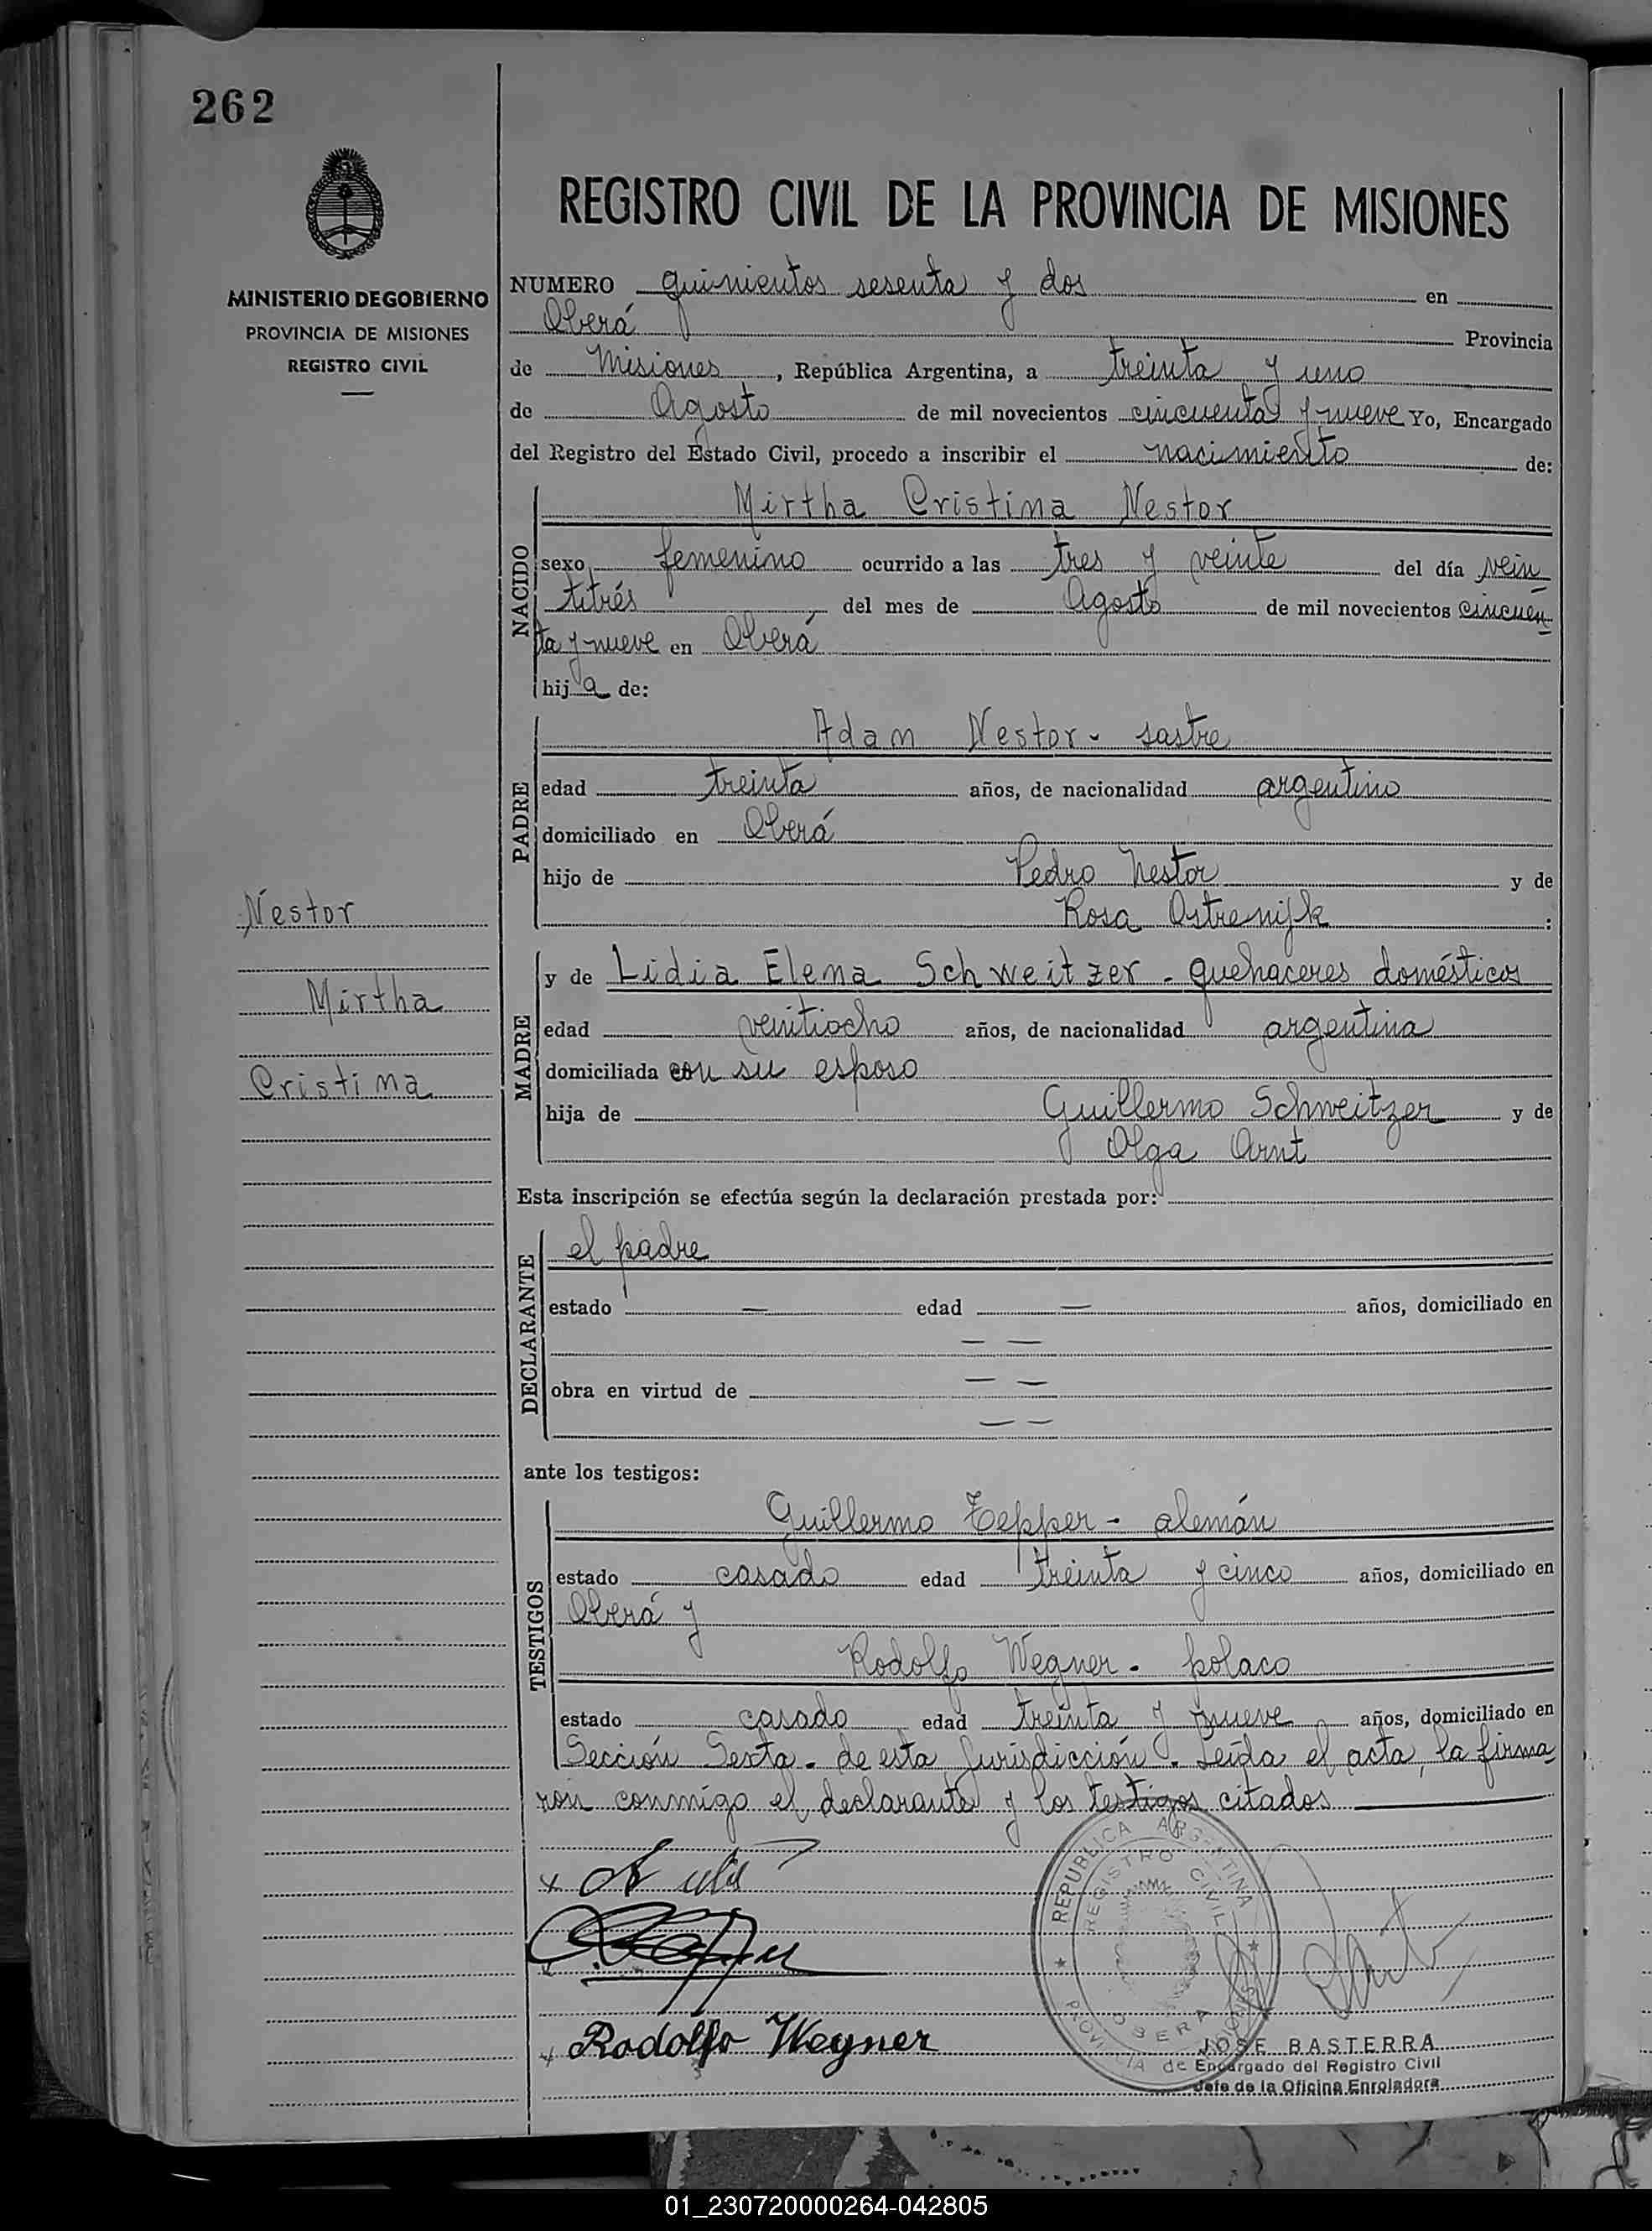 262
MINISTERIO DE GOBIERNO
PROVINCIA DE MISIONES
REGISTRO CIVIL
REGISTRO CIVIL DE LA PROVINCIA DE MISIONES
NUMERO quinientos sesenta y dos en
Oberá Provincia
de Misiones, República Argentina, a treinta y uno
de Agosto de mil novecientos cincuenta y nueve Yo, Encargado
del Registro del Estado Civil, procedo a inscribir el nacimiento de:
NACIDO
Mirtha Cristina Nestor
sexo femenino ocurrido a las tres y veinte del día vein
titrés del mes de Agosto de mil novecientos cincuen
ta y nueve en Oberá
hija de:
PADRE
Adam Nestor - sastre
edad treinta años, de nacionalidad argentino
domiciliado en Oberá
hijo de Pedro Nestor y de
Rosa :
Nestor
Mirtha
Cristina
MADRE
y de Lidia Elena Schweitzer - quehaceres domésticos
edad veintiocho años, de nacionalidad argentina
domiciliada con su esposo
hija de Guillermo Schweitzer y de
Olga Arnt
Esta inscripción se efectúa según la declaración prestada por:
DECLARANTE
el padre
estado — edad — años, domiciliado en
— —
obra en virtud de — —
— —
ante los testigos:
TESTIGOS
Guillermo Tepper - alemán
estado casado edad treinta y cinco años, domiciliado en
Oberá y
Rodolfo Wegner - polaco
estado casado edad treinta y nueve años, domiciliado en
Sección Sexta - de esta Jurisdicción. Leída el acta, la firma
ron conmigo el declarante y los testigos citados
REPUBLICA ARGENTINA
REGISTRO CIVIL
OBERA
PROVINCIA de MISIONES
x Rodolfo Wegner
JOSE BASTERRA
Encargado del Registro Civil
Jefe de la Oficina Enroladora
01_230720000264-042805